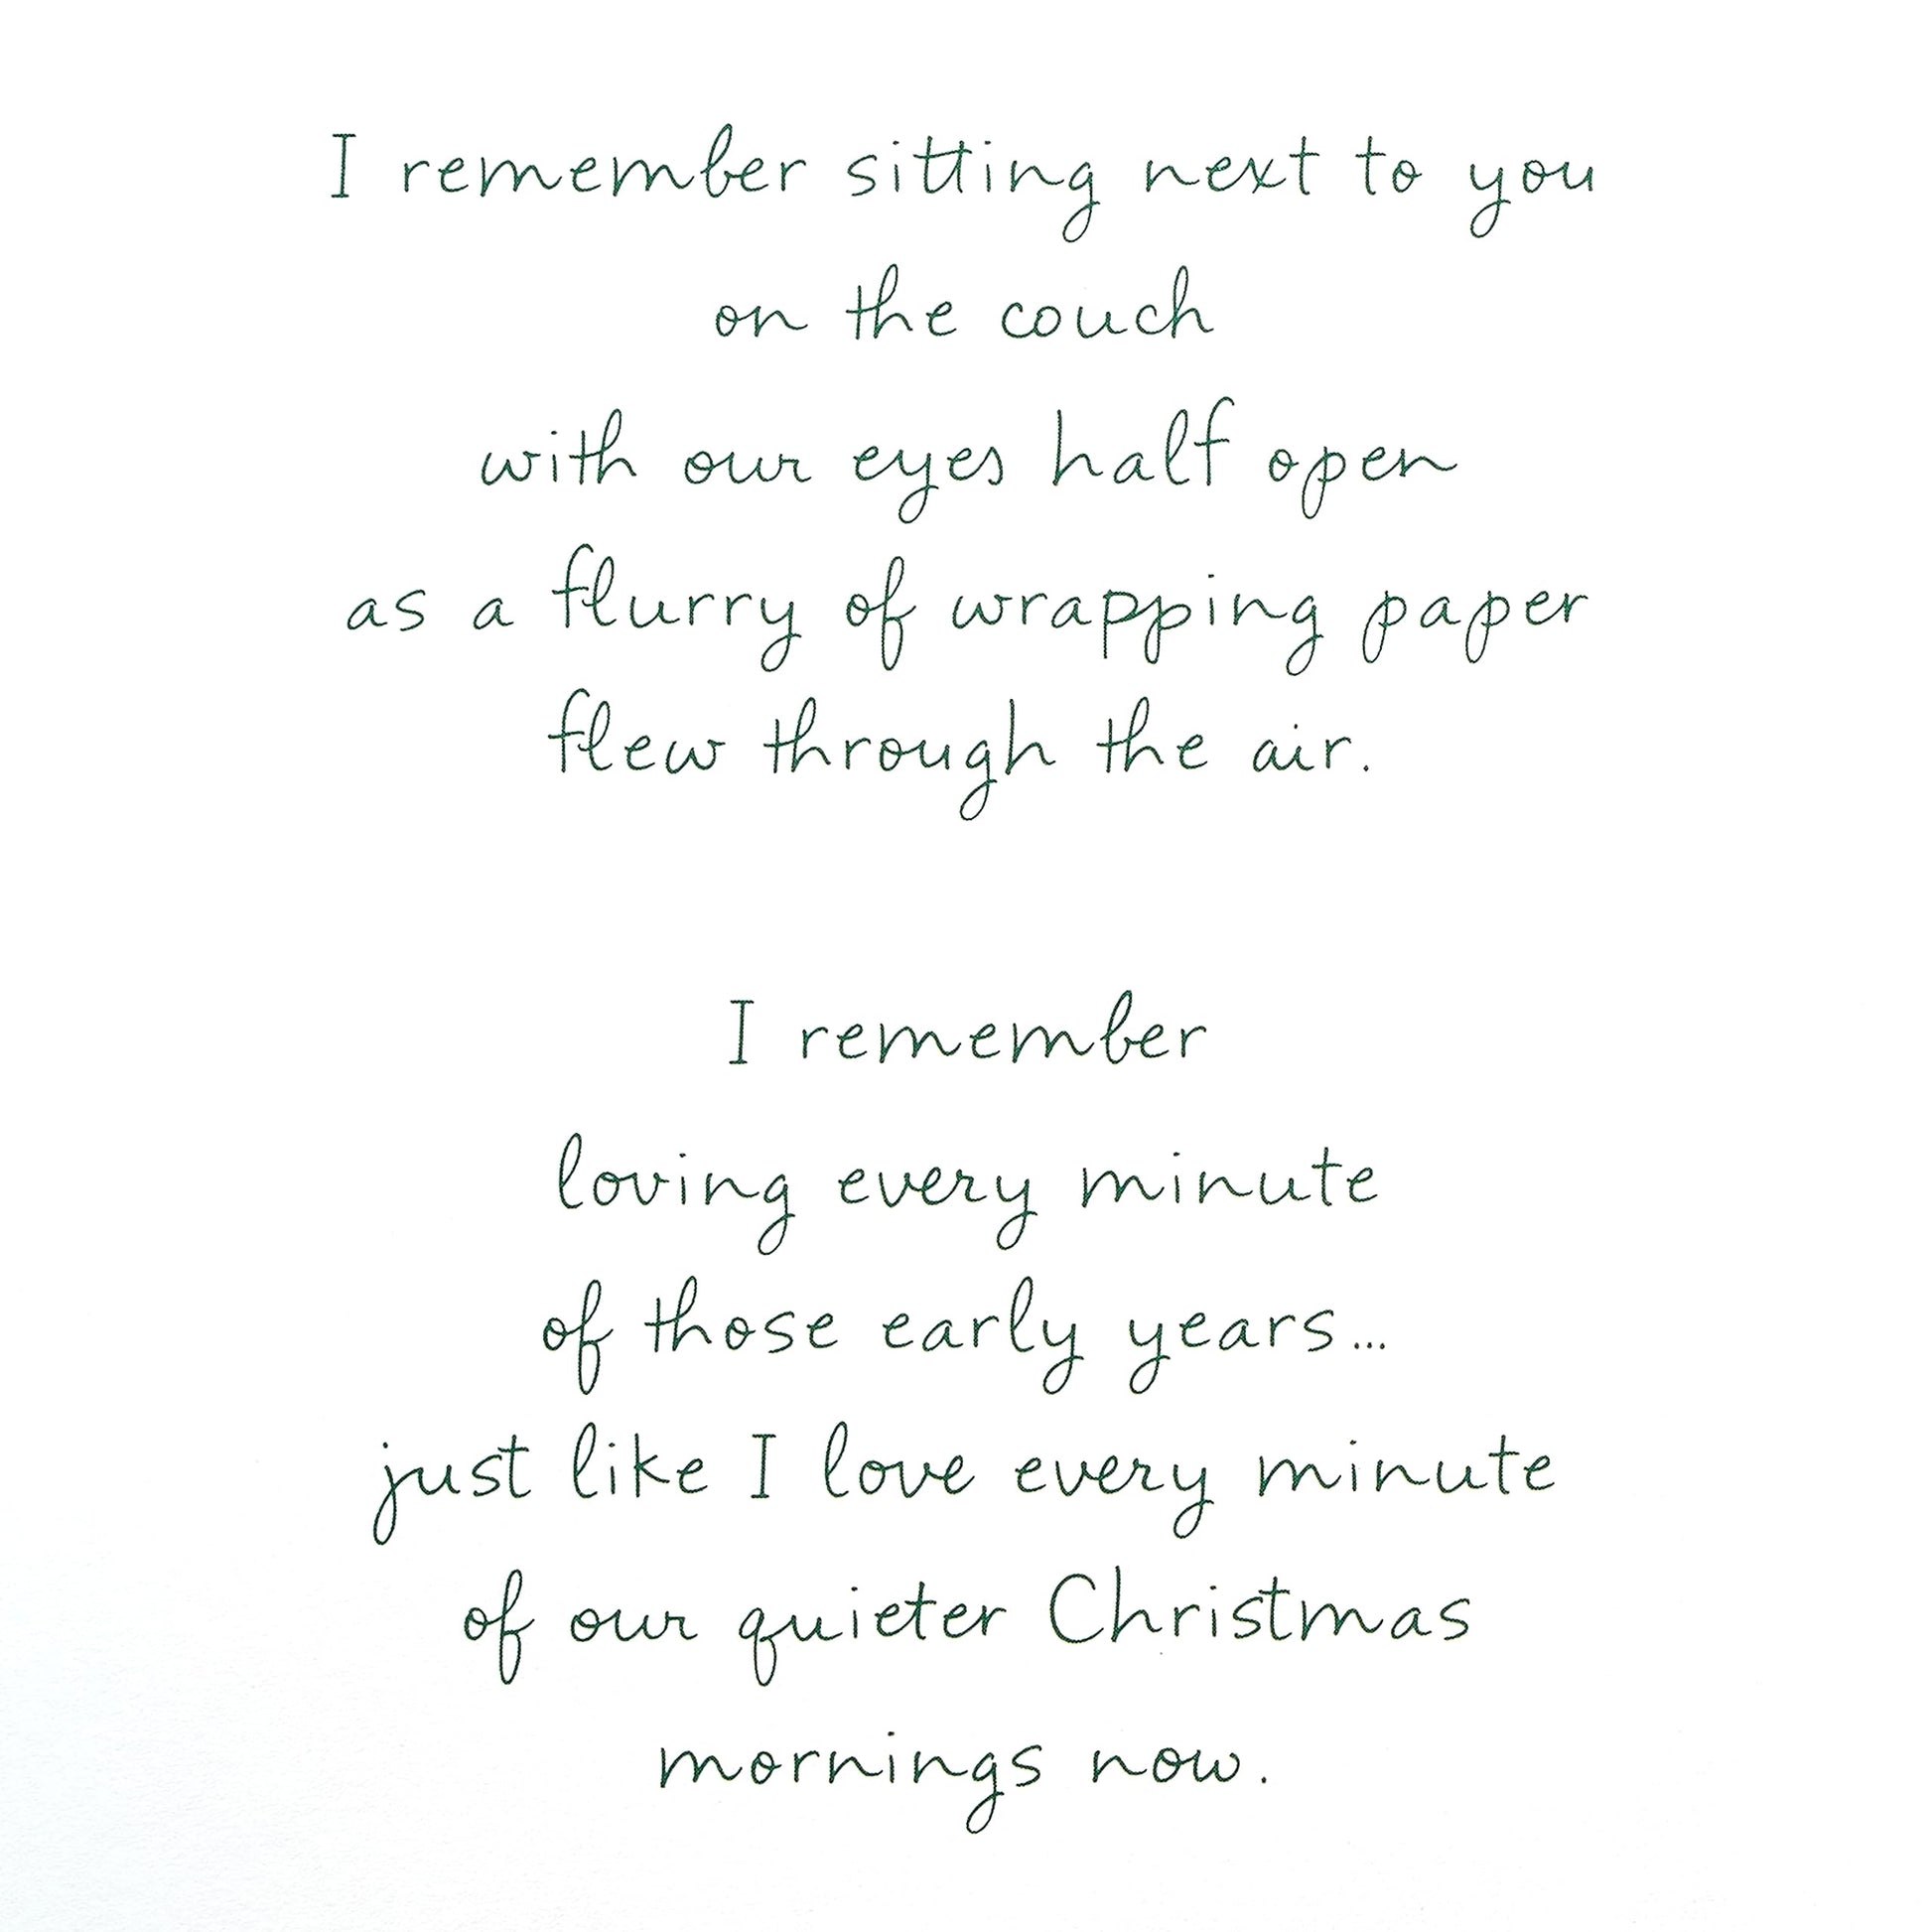 I remember sitting next to you
on the couch
with our eyes half open
as a flurry of wrapping paper
flew through the air.
I remember
loving every minute
of those early years...
just like I love every minute
of our quieter Christmas
mornings now.